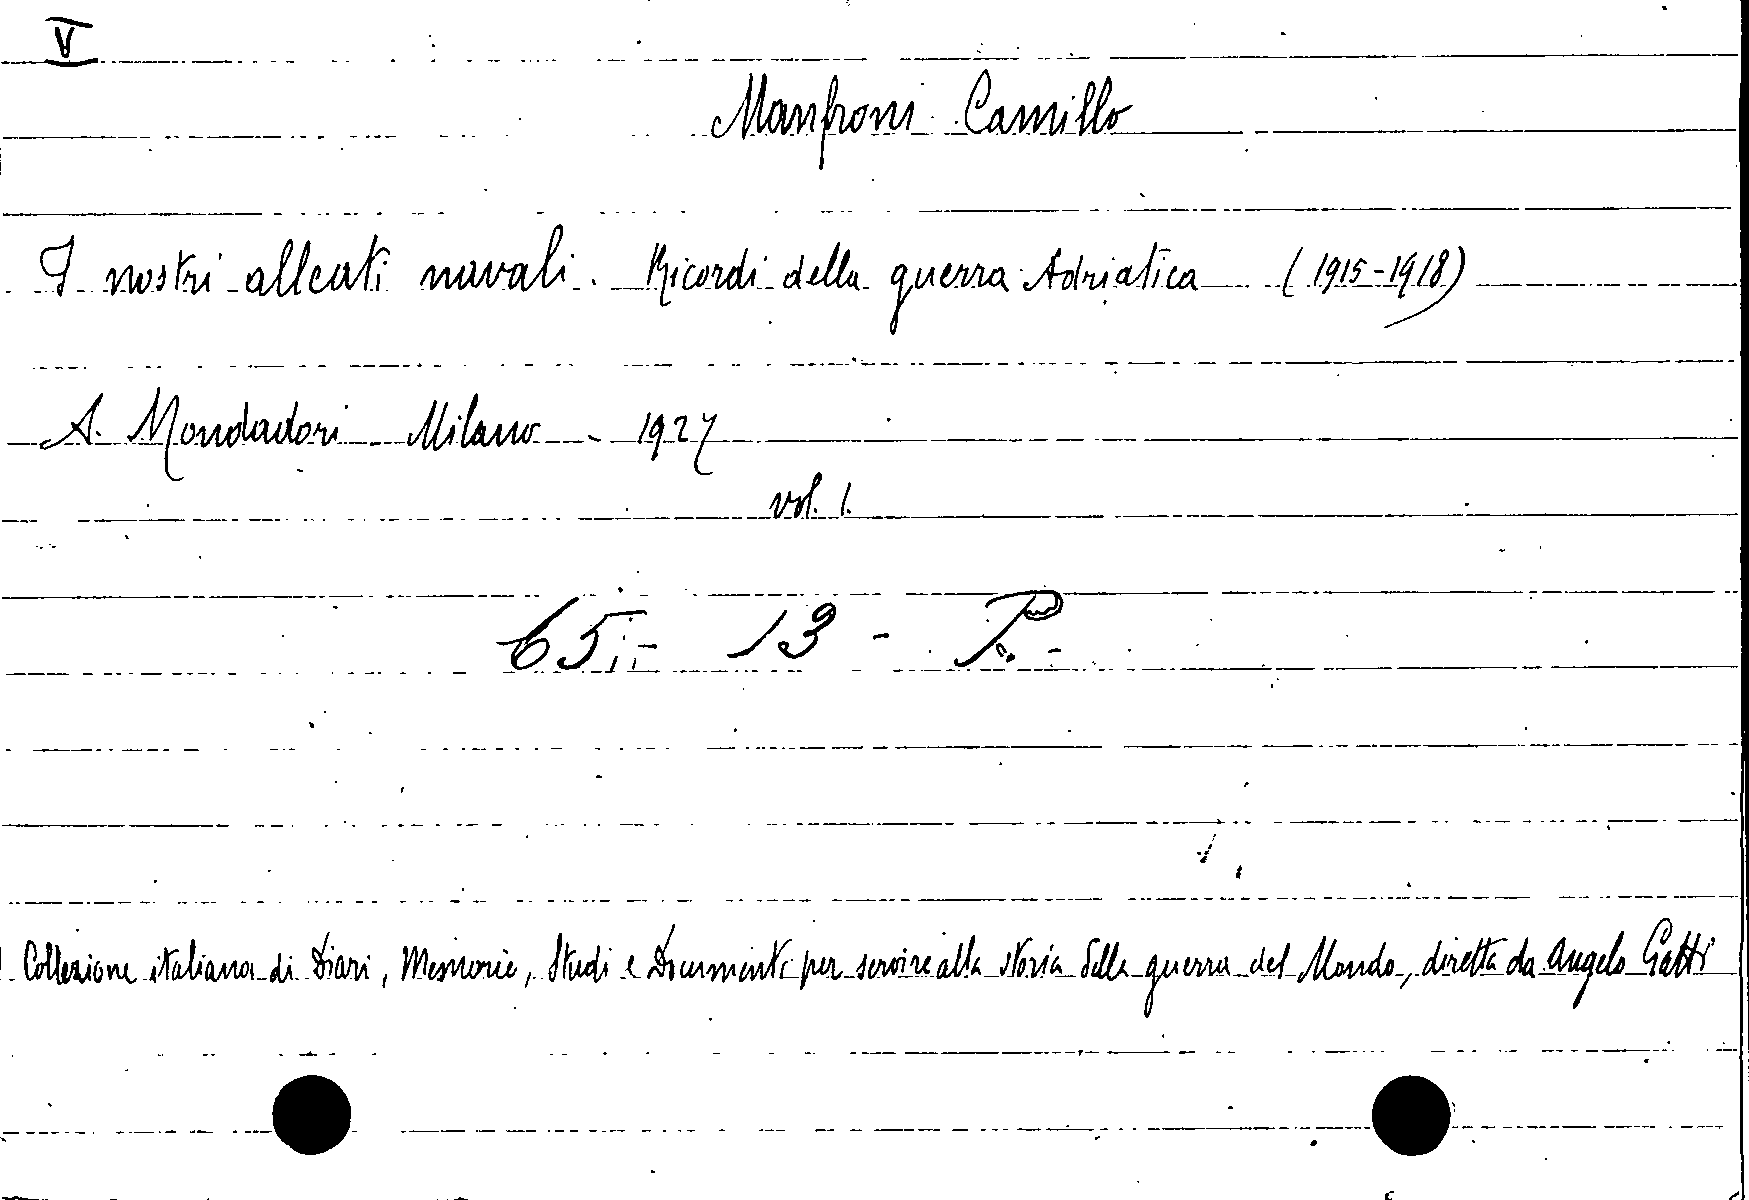 V
Manfroni Camillo
I nostri alleati navali. Ricordi della guerra Adriatica (1915-1918)
A. Mondadori - Milano - 1927
vol. 1.
65 - 13 - P. -
Collezione italiana di Diari, Memorie, Studi e Documenti per servire alla storia della guerra del Mondo, diretta da Angelo Gatti